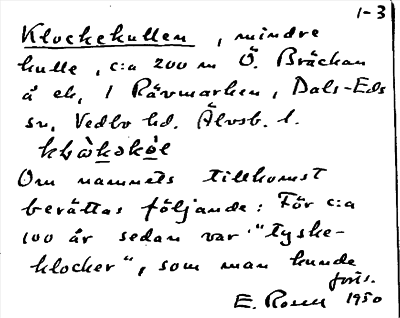 1-3
Klockekullen, mindre
kulle, c:a 200 m Ö. Bräckan
å ek, i Rävmarken, Dals-Eds
sn, Vedbo hd. Älvsb. l.
Om namnets tillkomst
berättas följande: För c:a
100 år sedan var "tyske-
klocker", som man kunde
forts.
E. Rosell 1950